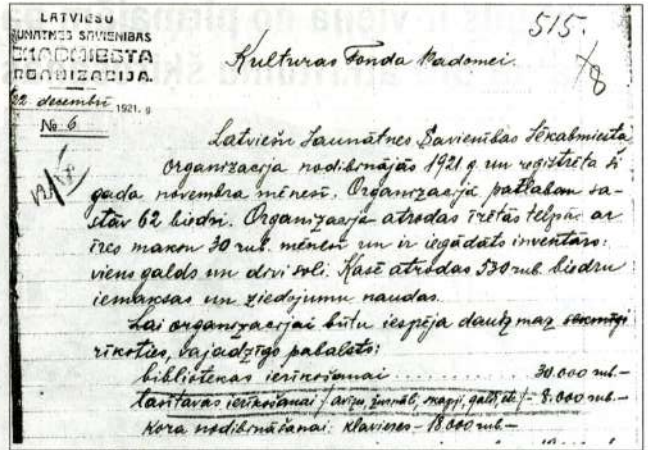 LATVIEŠU
JAUNATNES SAVIENIBAS
ORGANIZACIJA.
22 decembrī 1921. g
№ 6
515.
8
Kulturas Fonda Padomei.
Latviešu Jaunātnes Savienības Jēkabmiesta
organizacija nodibinājās 1921 g. un reģistrēta šī
gada novembra mēnesī. Organizacijā patlaban sa-
stāv 62 biedri. Organizacija atrodas īrētās telpās ar
īres maksu 30 rub. mēnesī un ir iegādāts inventārs:
viens galds un divi soli. Kasē atrodas 530 rub. biedru
iemaksas un ziedojumu naudas.
Lai organizacijai būtu iespēja daudzmaz sekmīgi
rīkoties, vajadzīgs pabalsts:
bibliotekas ierīkošanai . . . . . . . . . 30.000 rub.—
lasītavas ierīkošanai (avīzu, žurnāli, skapji, galdi, etc.) — 8.000 rub.—
Kora nodibināšanai: klavieres — 18000 rub—